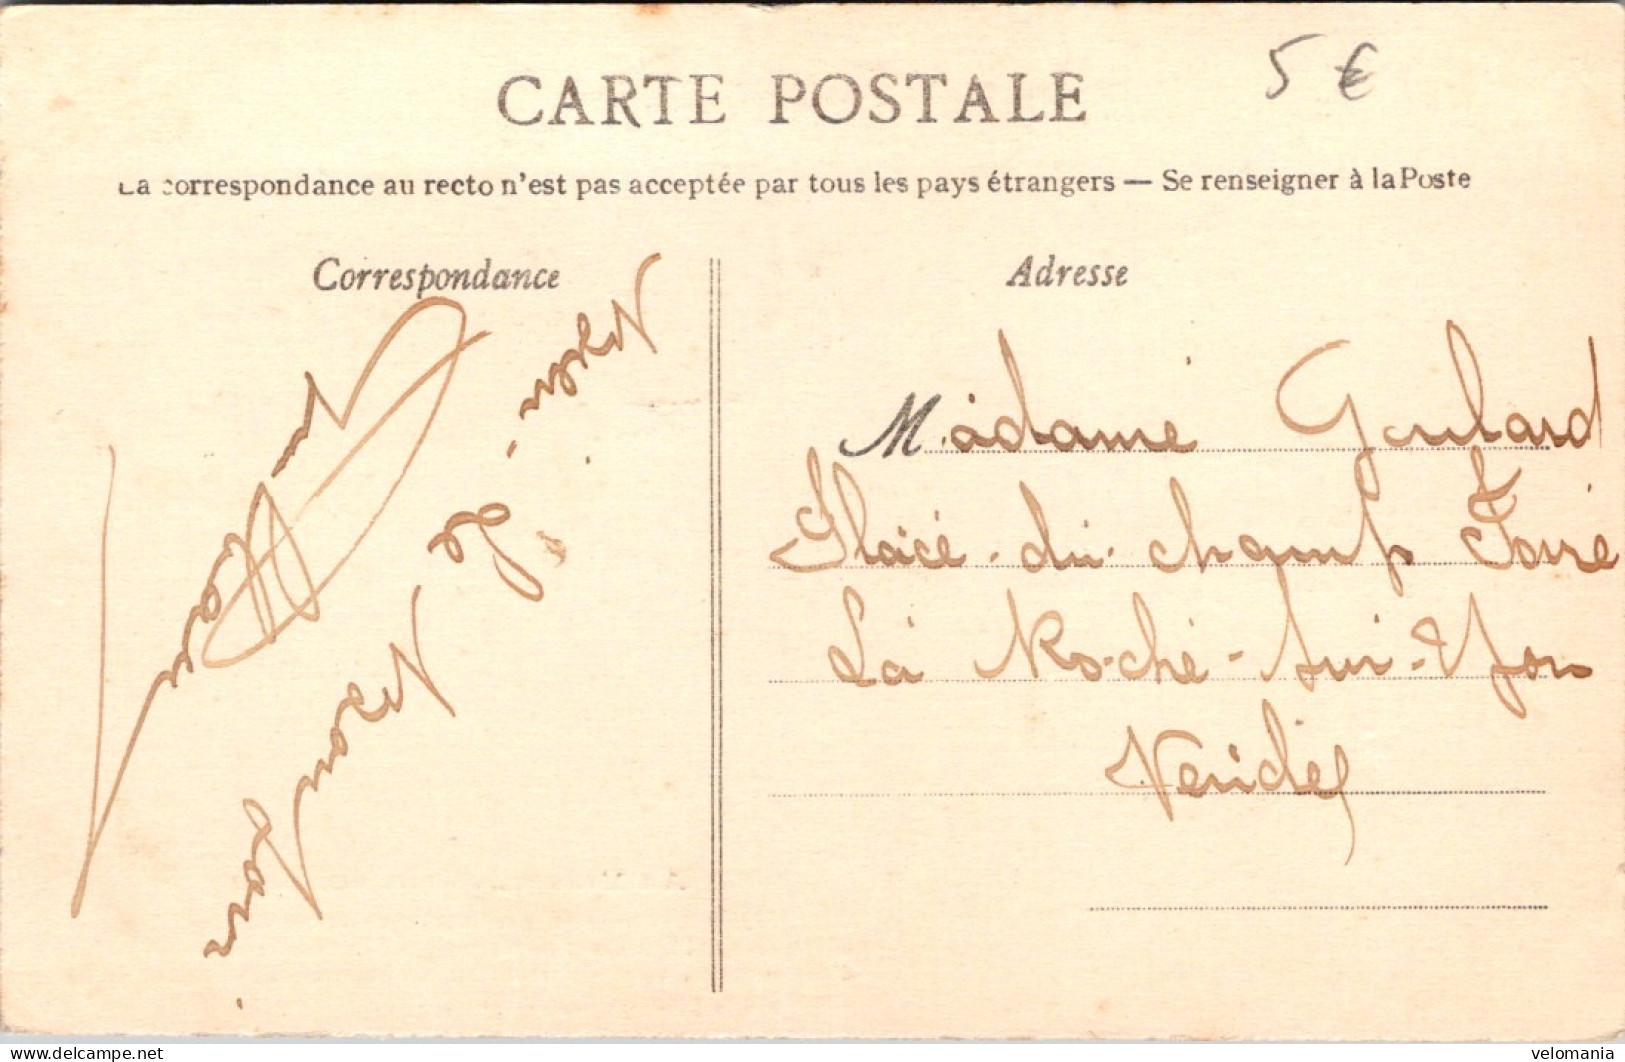 CARTE POSTALE
5 €
La correspondance au recto n'est pas acceptée par tous les pays étrangers — Se renseigner à la Poste
Correspondance
Adresse
Madame Goulard
Place du champ Foire
La Roche-sur-Yon
Vendée
delcampe.net
velomania